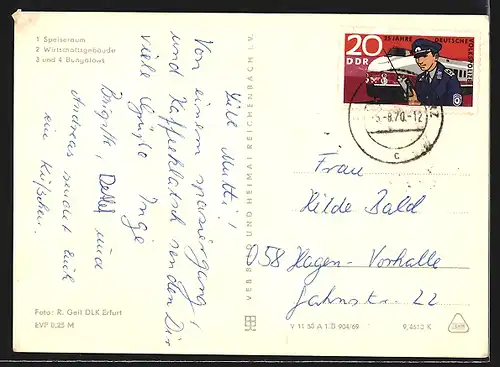 1 Speiseraum
2 Wirtschaftsgebäude
3 und 4 Bungalows
Liebe Mutti!
Von einem Spaziergang
und Kaffeeklatsch senden Dir
viele Grüße Inge
Brigitte, Detlef und
Andreas sendet Euch
ein Küßchen.
Foto: R. Geil DLK Erfurt
EVP 0,25 M
VEB BILD UND HEIMAT REICHENBACH I. V.
V 11 50 A 1 B 904/69
20
DDR
25 JAHRE DEUTSCHE
VOLKSPOLIZEI
-8.70.-12
c
Frau
Hilde Bald
058 Hagen-Vorhalle
Jahnstr. 22